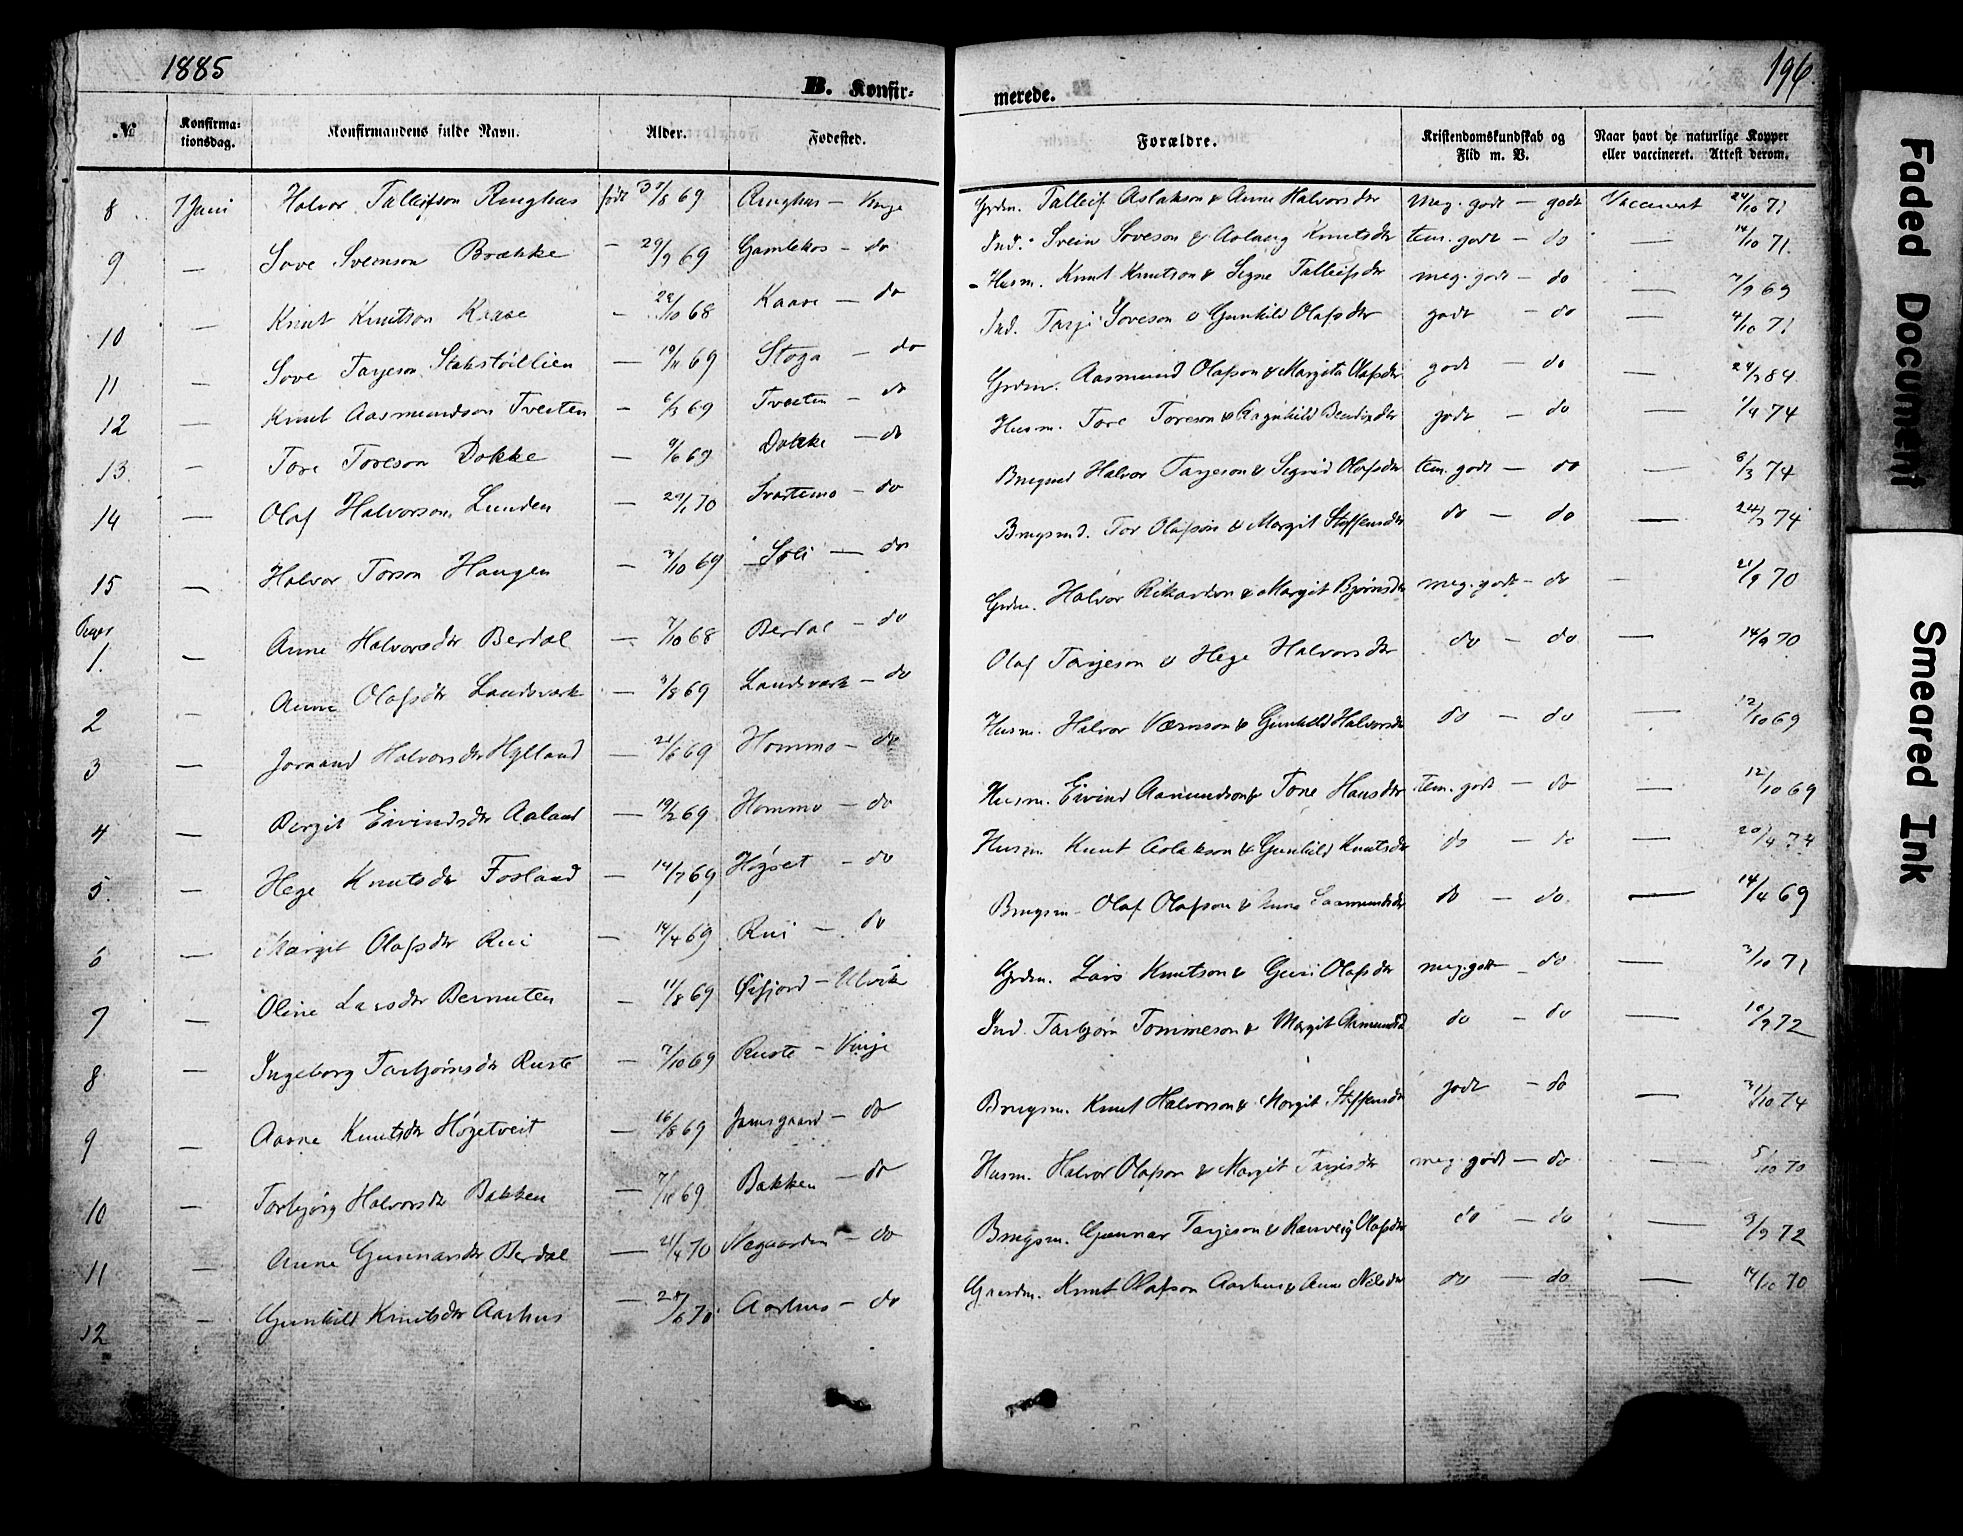 1885
196
B. Konfir-
merede.
№ Konfirma-tionsdag. Konfirmandens fulde Navn. Alder. Fødested. Forældre. Kristendomskundskab og Flid m. V. Naar havt de naturlige Kopper eller vaccineret. Attest derom.
8 7 Juni Halvor Talleifson Ringhus født 69 Ringhus – Vinje Grdm. Talleif Aslakson & Anne Halvorsdr Meg. godt – godt Vaccineret 24/10 71
9 — Sove Sveinson Brække — 29/9 69 Gamlekos – do Ind. Svein Soveson & Aslaug Knutsdr tem. godt – do — 14/10 71.
10 — Knut Knutson Kaase — 10 68 Kaase – do Husm. Knut Knutson & Signe Talleifsdr meg. godt – do — 7/9 69
11 — Sove Tarjeson — 19/11 69 Stoga – do Ind. Tarje Soveson & Gunhild Olafsdr godt – do — 4/10 71
12 — Knut Aasmundson Tveiten — 6/3 69 Tveiten – do Grdm. Aasmund Olafson & Margita Olafsdr godt – do — 84
13 — Tore Toreson Dokke — 9/6 69 Dokke – do Husm. Tore Toreson & godt – do — 1/9 74
14 — Olaf Halvorson Lunden — 29/1 70 Svartemo – do Brugsmd Halvor Tarjeson & Sigrid Olafsdr tem. godt – do — 8/3 74
15 — Halvor Torson Haugen — 3/10 69 Soli – do Brugsmd. Tor Olafson & Margit Steffensdr do – do — 74
Piger
1. — Anne Halvorsdr Berdal — 7/10 68 Berdal – do Grdm. Halvor Rikardson & Margit Bjørnsdr meg. godt – do — 21/9 70
2 — Anne Olafsdr Landsverk — 69 Landsverk – do Olaf Tarjeson & Hege Halvorsdr do – do — 14/9 70
3 — Joraand Halvorsdr Hylland — 21/6 69 Hommo – do Husm. Halvor & Gunhild Halvorsdr do – do — 12/10 69
4 — Bergit Eivindsdr Aaland — 19/2 69 Hommo – do Husm. Eivind Aamundson & Tone Hansdr tem. godt – do — 12/10 69
5 — Hege Knutsdr Fosland — 14/7 69 Høgset – do Husm. Knut Aslakson & Gunhild Knutsdr do – do — 20/4
6 — Margit Olafsdr Rui — 14/4 69 Rui – do Brugsm. Olaf Olafson & do – do — 14/4 69
7 — Oline Larsdr Bernuten — 11/8 69 Øifjord – Ulvik Grdm. Lars Knutson & Guri Olafsdr meg. godt – do — 3/10 71
8 — Ingeborg Tarbjørnsdr Ruste — 7/10 69 Ruste – Vinje Ind. Tarbjørn Tommeson & Margit do – do — 10/9 72
9 — Aasne Knutsdr Høgetveit — 16/8 69 Jamsgaard – do Brugsm. Knut Halvorson & Margit Steffensdr godt – do — 3/10 74
10 — Torbjørg Halvorsdr Bakken — 7/11 69 Bakken – do Husm. Halvor Olafson & Margit Tarjesdr meg. godt – do — 5/10 70
11 — Anne Gunnarsdr Berdal — 21/4 70 Negaarden – do Brugsm. Gunnar Tarjeson & Ranveig Olafsdr do – do — 9/9 72
12 — Gunhild Knutsdr Aarhus — 6 70 Aarhus – do Gaardm. Knut Olafson Aarhus & Anne Nilsdr do – do — 14/10 70
Faded Document
Smeared Ink